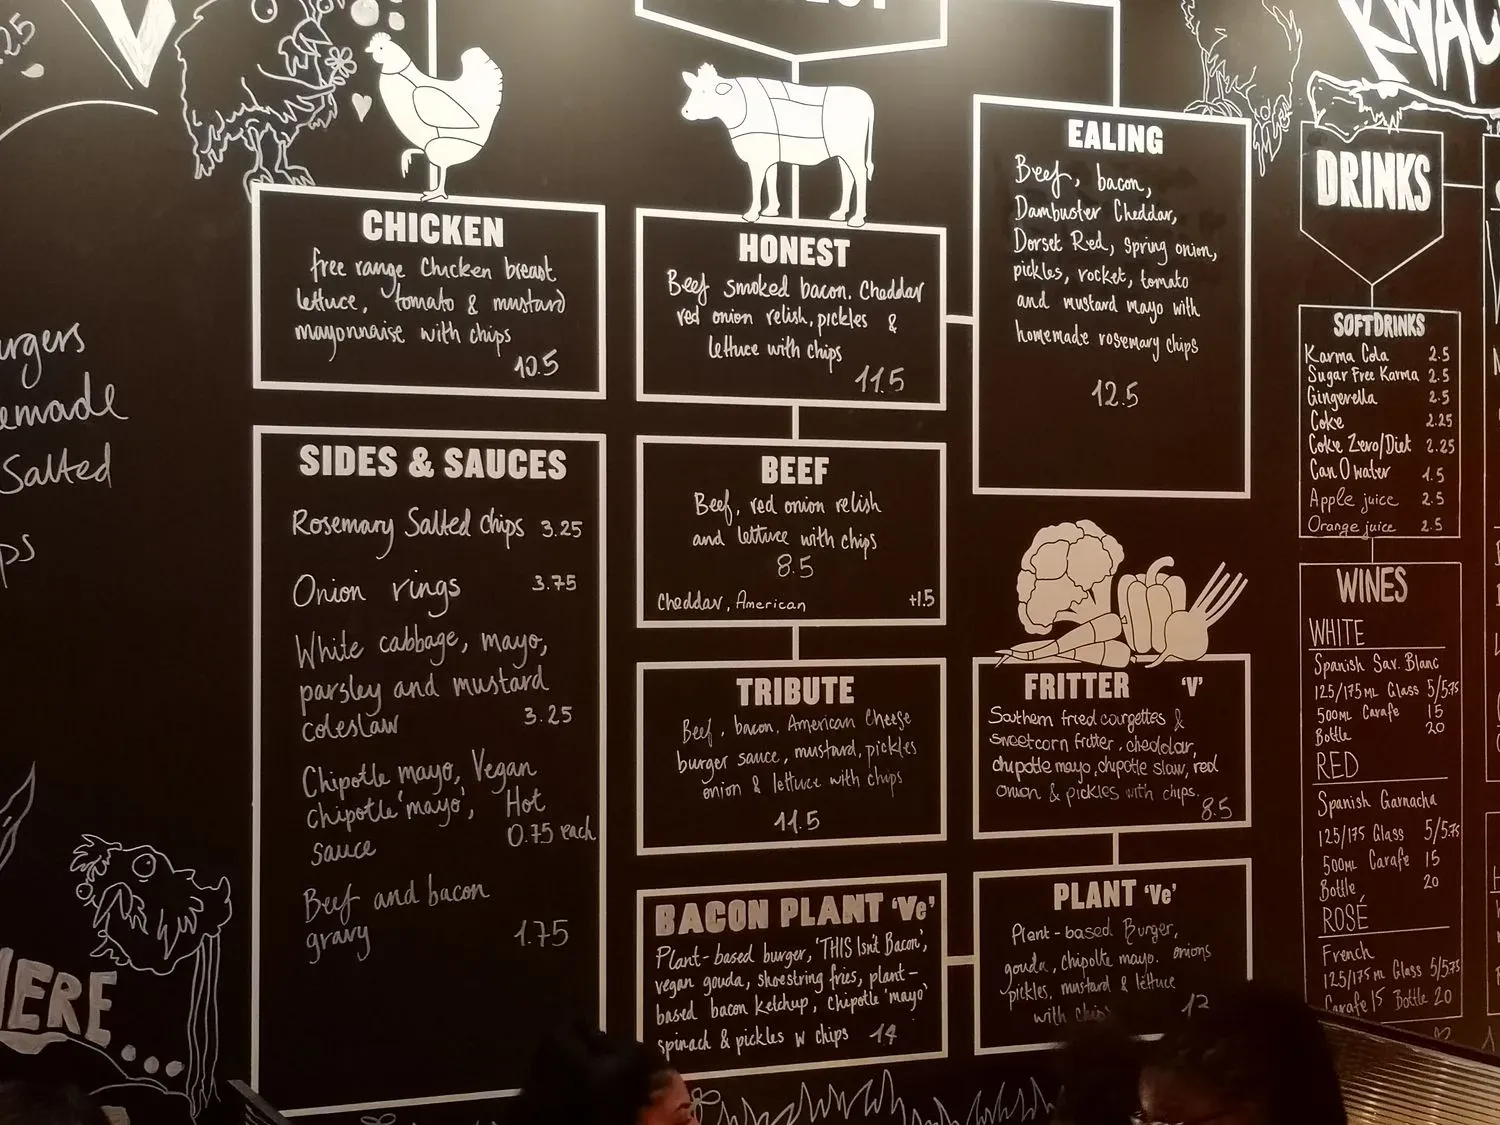 .25
urgers
emade
Salted
ps
HERE
CHICKEN
free range Chicken breast
lettuce, tomato & mustard
mayonnaise with chips
10.5
SIDES & SAUCES
Rosemary Salted chips 3.25
Onion rings 3.75
White cabbage, mayo,
parsley and mustard
coleslaw 3.25
Chipotle mayo, Vegan
chipotle 'mayo', Hot
sauce 0.75 each
Beef and bacon
gravy 1.75
HONEST
Beef smoked bacon. Cheddar
red onion relish, pickles &
lettuce with chips
11.5
BEEF
Beef, red onion relish
and lettuce with chips
8.5
Cheddar, American +1.5
TRIBUTE
Beef, bacon, American Cheese
burger sauce, mustard, pickles
onion & lettuce with chips
11.5
BACON PLANT 'Ve'
Plant-based burger, 'THIS Isn't Bacon',
vegan gouda, shoestring fries, plant-
based bacon ketchup, chipotle 'mayo'
spinach & pickles w chips 14
EALING
Beef, bacon,
Dambuster Cheddar,
Dorset Red, spring onion,
pickles, rocket, tomato
and mustard mayo with
homemade rosemary chips
12.5
FRITTER 'V'
Southern fried courgettes &
sweetcorn fritter, cheddar,
chipotle mayo, chipotle slaw, red
onion & pickles with chips.
8.5
PLANT 'Ve'
Plant-based Burger,
gouda, chipolte mayo. onions
pickles, mustard & lettuce
with chips 12
DRINKS
SOFTDRINKS
Karma Cola 2.5
Sugar Free Karma 2.5
Gingerella 2.5
Coke 2.25
Coke Zero/Diet 2.25
Can O water 1.5
Apple juice 2.5
Orange juice 2.5
WINES
WHITE
Spanish Sav. Blanc
125/175ML Glass 5/5.75
500ML Carafe 15
Bottle 20
RED
Spanish Garnacha
125/175 Glass 5/5.75
500ML Carafe 15
Bottle 20
ROSÉ
French
125/175 ml Glass 5/5.75
Carafe 15 Bottle 20